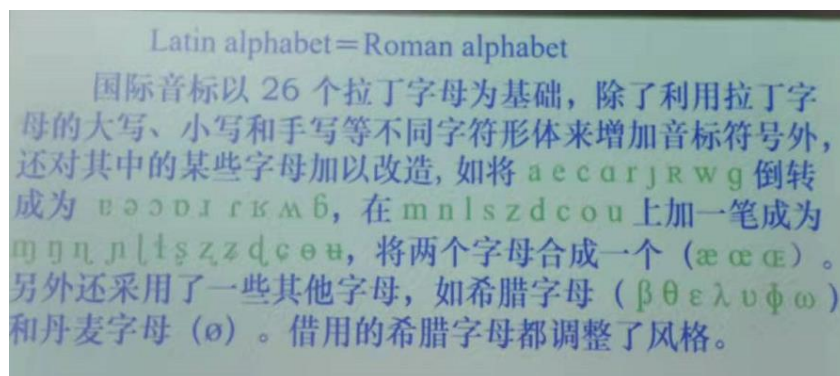 Latin alphabet＝Roman alphabet
国际音标以 26 个拉丁字母为基础，除了利用拉丁字
母的大写、小写和手写等不同字符形体来增加音标符号外，
还对其中的某些字母加以改造, 如将 a e c ɑ r ȷ ʀ w ɡ 倒转
成为 ɐ ə ɔ ɒ ɹ ɾ ʁ ʍ ɓ，在 m n l s z d c o u 上加一笔成为
ɱ ŋ ɳ ɲ ɭ ɫ ʂ ʐ ʑ ɖ ɕ ɵ ʉ，将两个字母合成一个（æ œ ɶ）。
另外还采用了一些其他字母，如希腊字母（β θ ε λ υ ɸ ω）
和丹麦字母（ø）。借用的希腊字母都调整了风格。